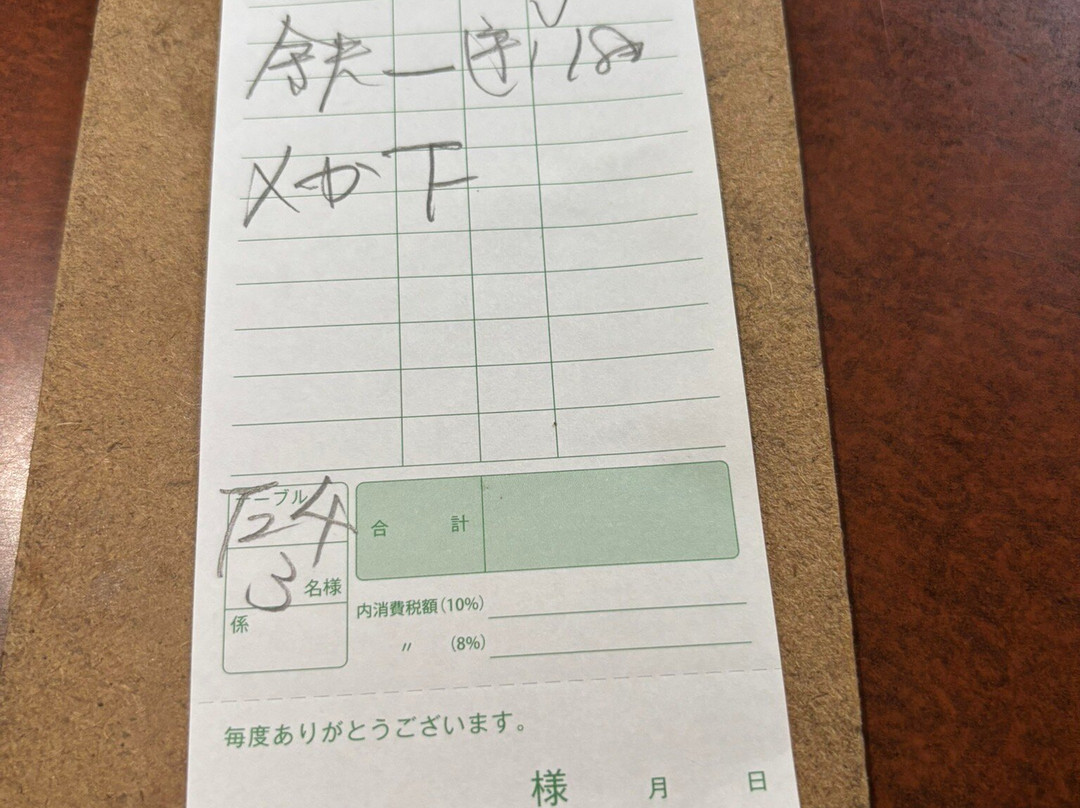 メカ 下
テーブル
T24
合 計
3 名様
内消費税額(10%)
係
〃 (8%)
毎度ありがとうございます。
様 月 日